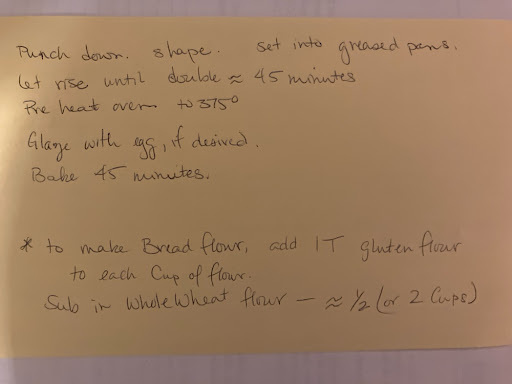 Punch down. shape. set into greased pans.
let rise until double ≈ 45 minutes
Pre heat oven to 375°
Glaze with egg, if desired.
Bake 45 minutes.
* to make Bread flour, add 1T gluten flour
to each Cup of flour.
Sub in whole wheat flour — ≈ 1/2 (or 2 Cups)